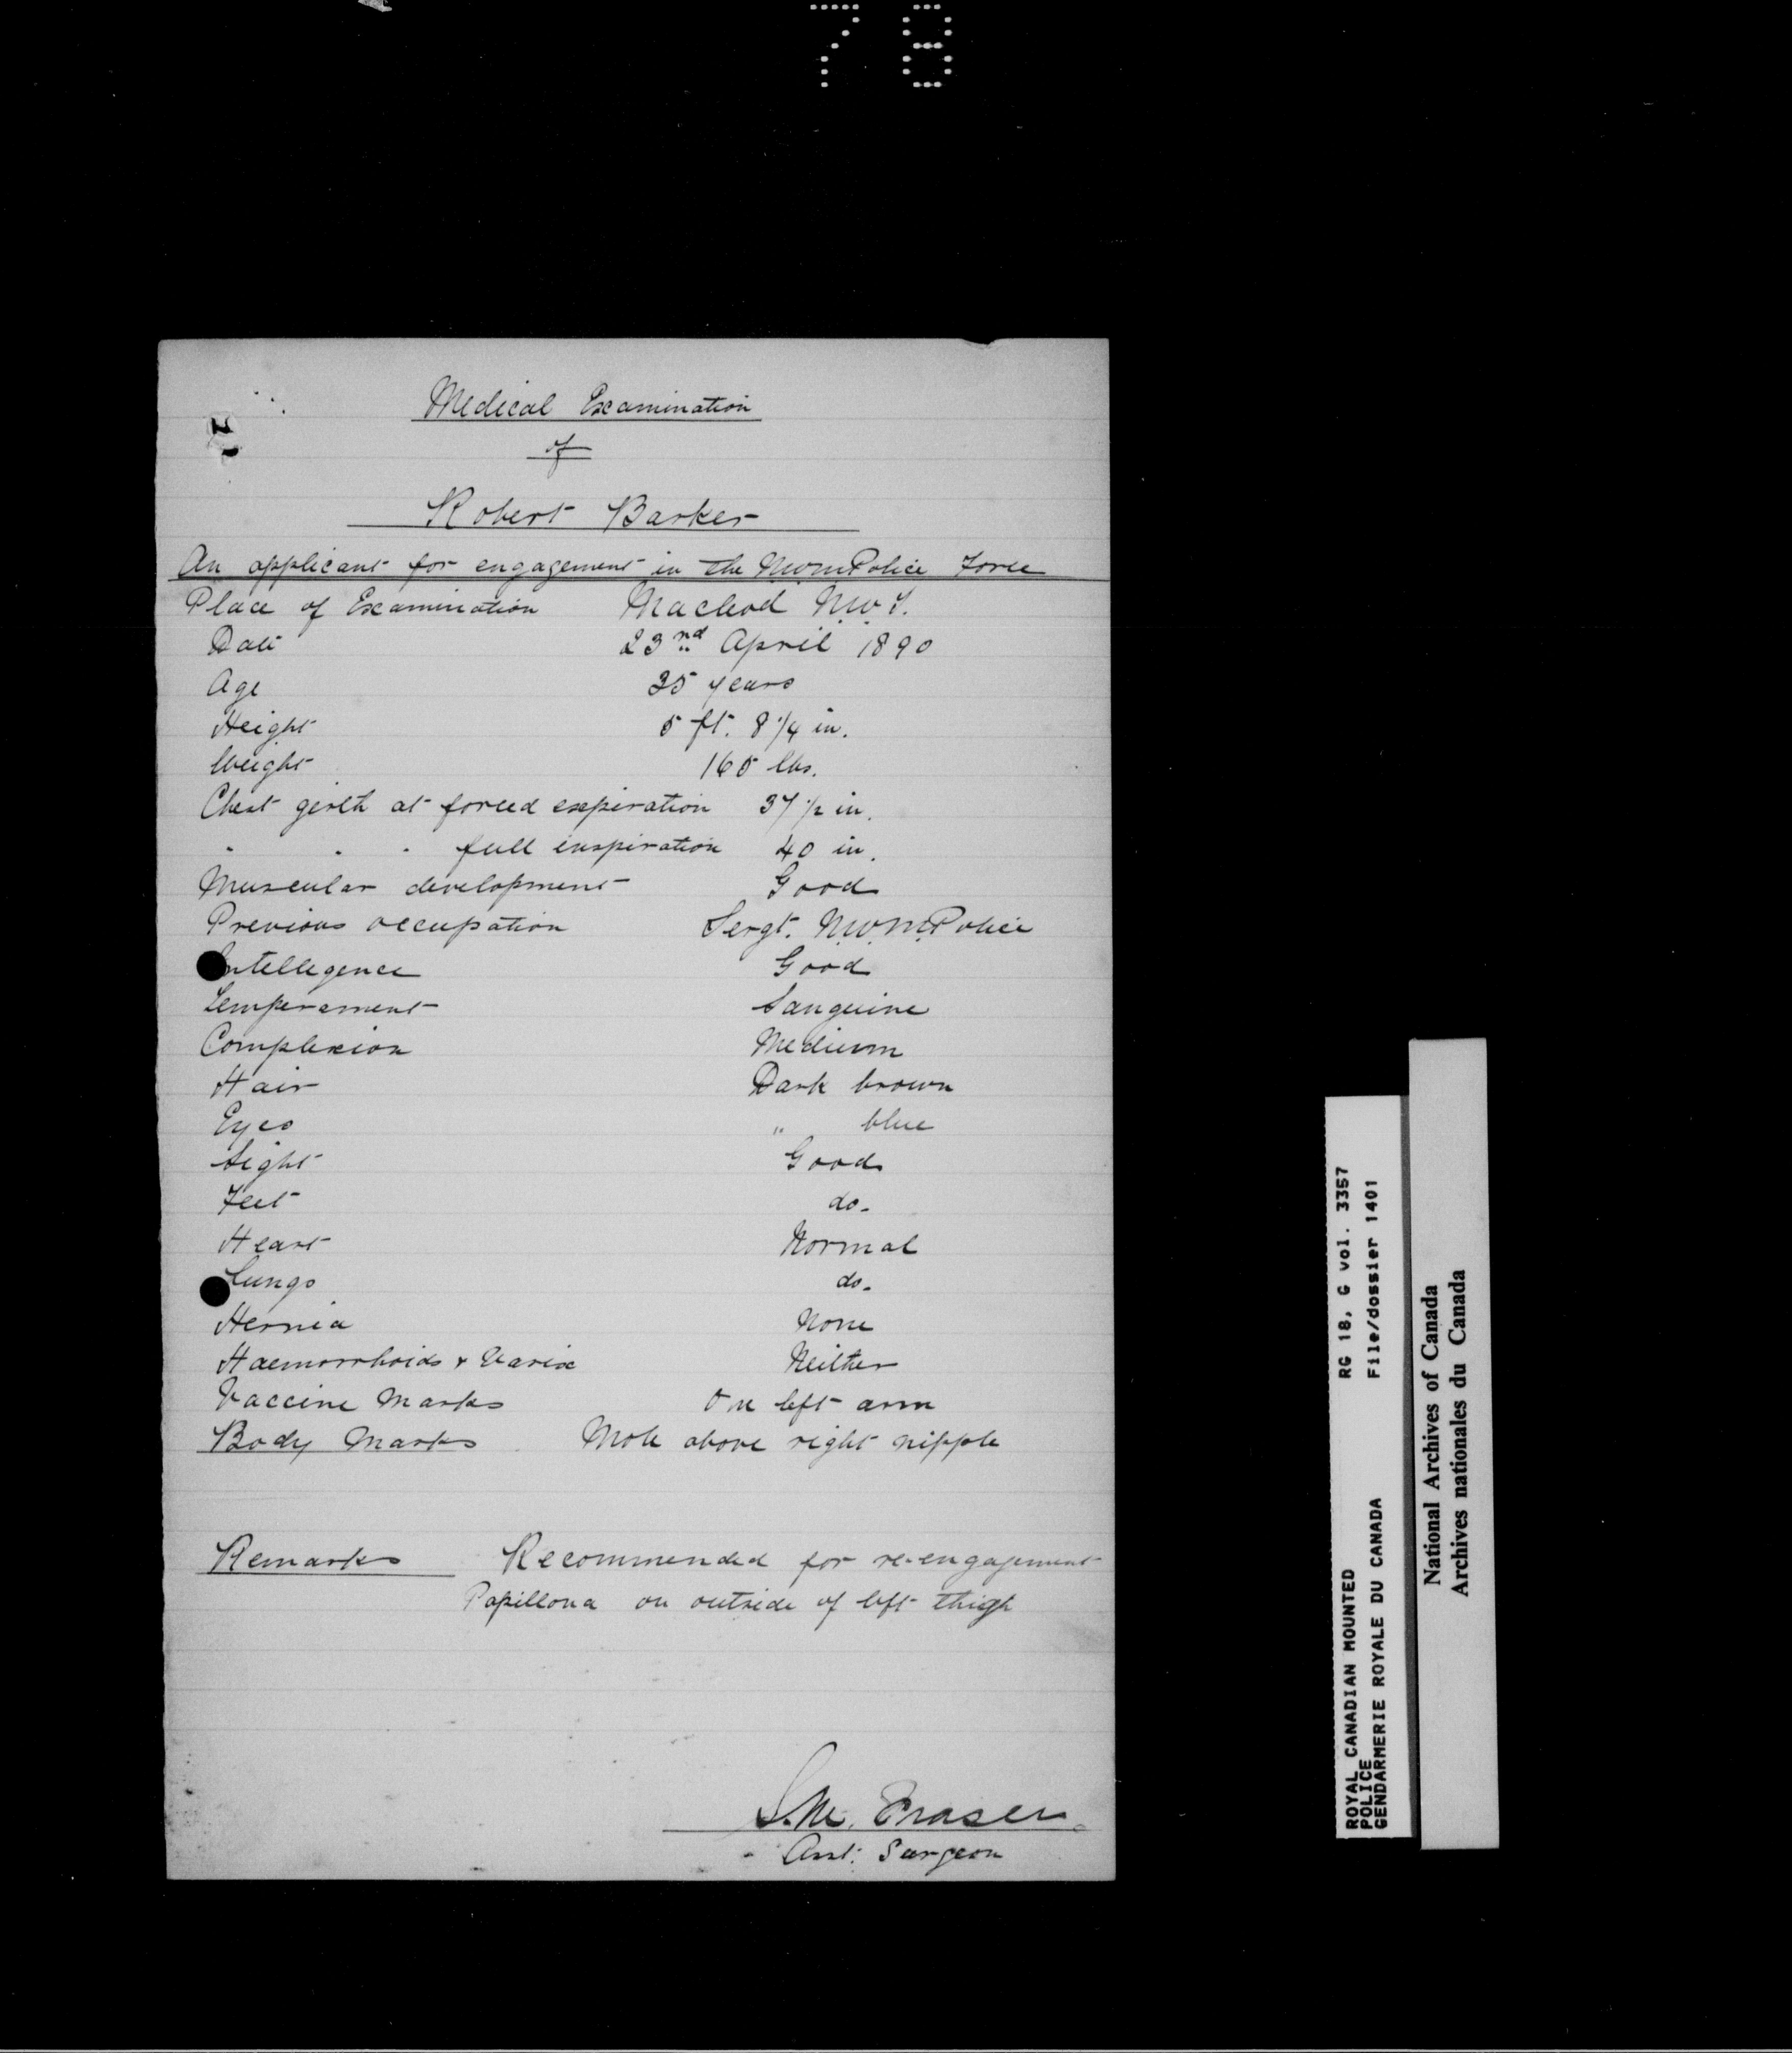 78
Medical Examination
of
Robert Barker
An applicant for engagement in the N.W.M. Police Force
Place of Examination Macleod N.W.T.
Date 23rd April 1890
Age 35 years
Height 5 ft. 8 1/4 in.
Weight 165 lbs.
Chest girth at forced expiration 37 1/2 in.
" " " full inspiration 40 in.
Muscular development Good
Previous occupation Sergt. N.W.M. Police
Intellegence Good
Temperament Sanguine
Complexion Medium
Hair Dark brown
Eyes " blue
Sight Good
Feet do.
Heart Normal
Lungs do.
Hernia None
Haemorrhoids & Varix Neither
Vaccine Marks On left arm
Body Marks Mole above right nipple
Remarks Recommended for re-engagement
Papillona on outside of left thigh
S.M. Fraser
Asst. Surgeon
ROYAL CANADIAN MOUNTED RG 18, G vol. 3357
POLICE
GENDARMERIE ROYALE DU CANADA File/dossier 1401
National Archives of Canada
Archives nationales du Canada